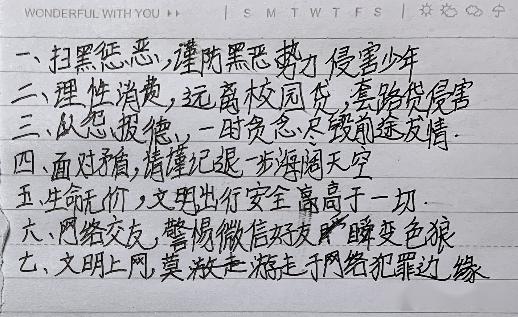 WONDERFUL WITH YOU | S M T W T F S |
一、扫黑惩恶,谨防黑恶势力侵害少年
二、理性消费,远离校园贷,套路贷侵害
三、以怨报德、一时贪念尽毁前途友情.
四、面对矛盾,请谨记退一步海阔天空
五、生命无价,文明出行安全高高于一切.
六、网络交友,警惕微信好友瞬变色狼
七、文明上网,莫游走于网络犯罪边缘